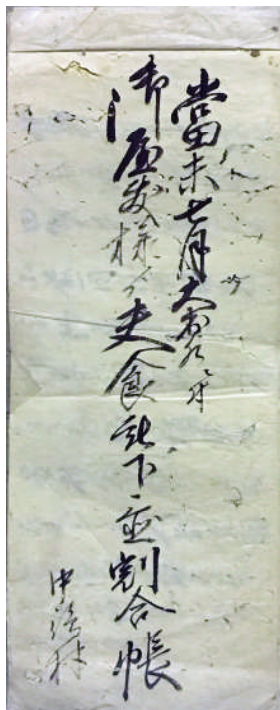 當未七月大水ニ付
御屋敷様ゟ夫食被下並割合帳
中沼村